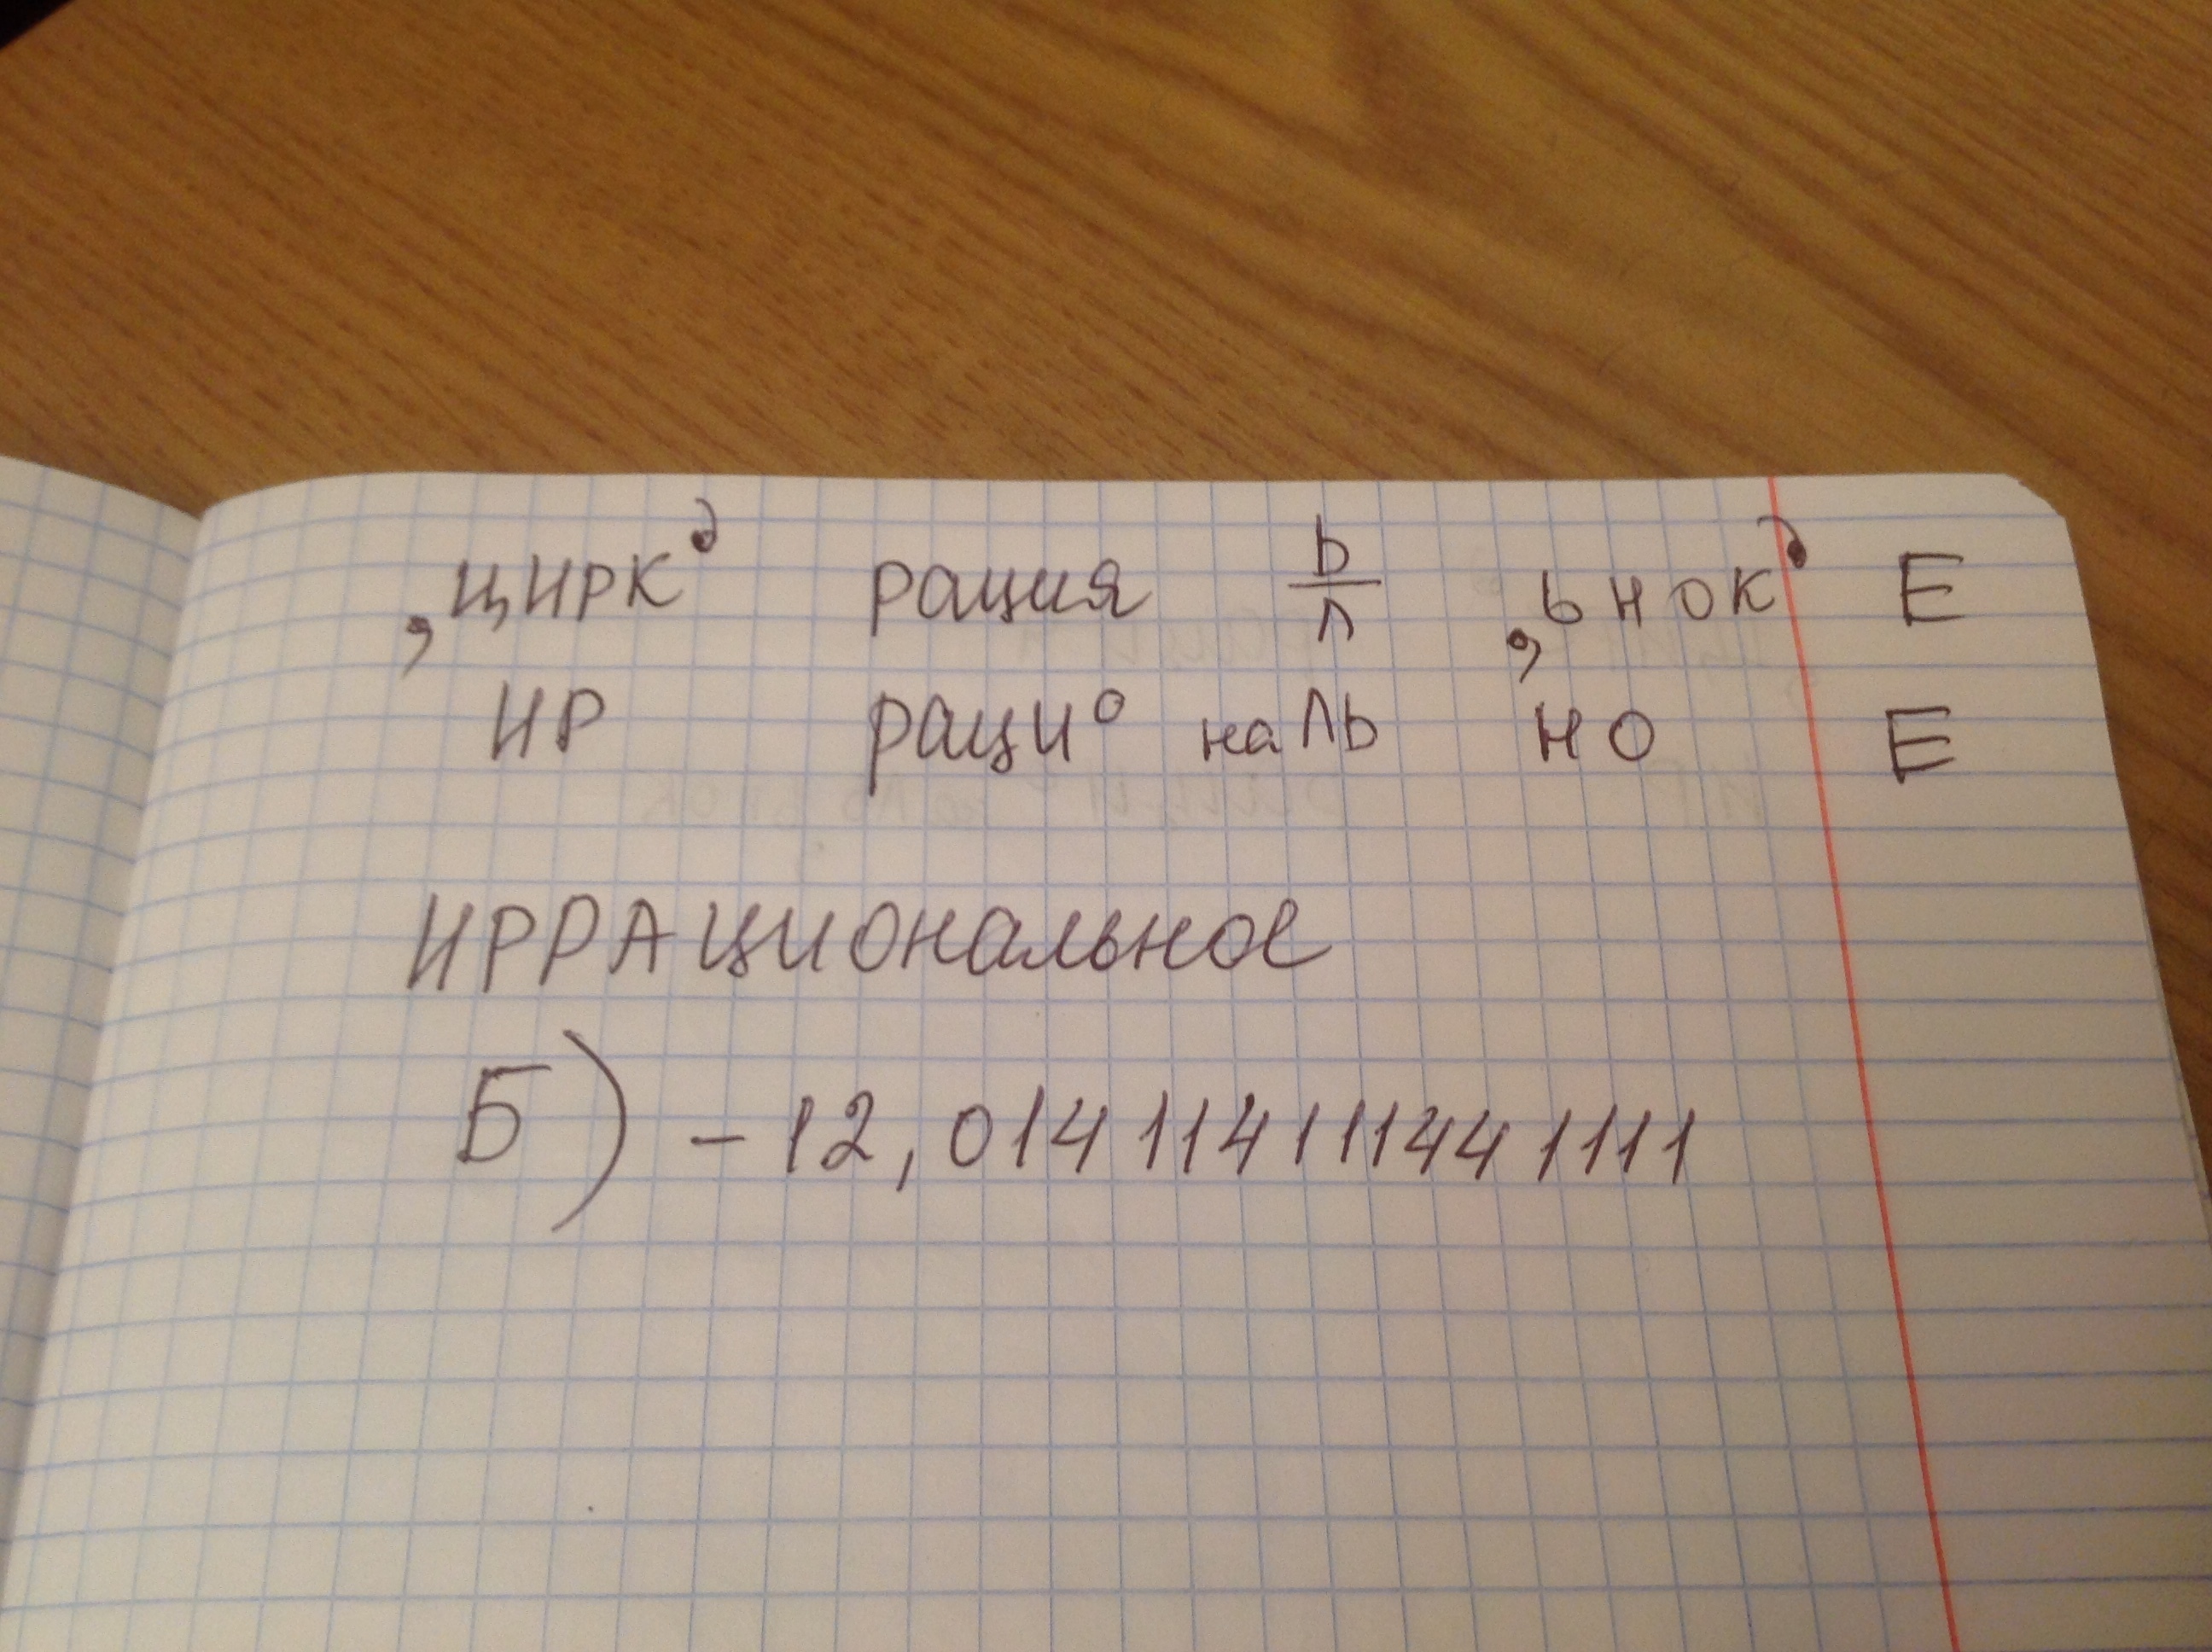 , цирк , рация ь/л , ьнок , Е
ИР раци о на ль но Е
ИРРАЦИОнальное
Б) -12,0141141114441111